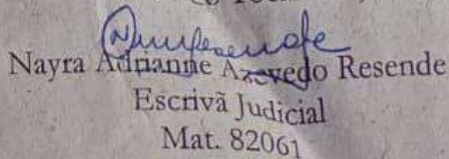 Nayra Adrianne Azevedo Resende
Escrivã Judicial
Mat. 82061